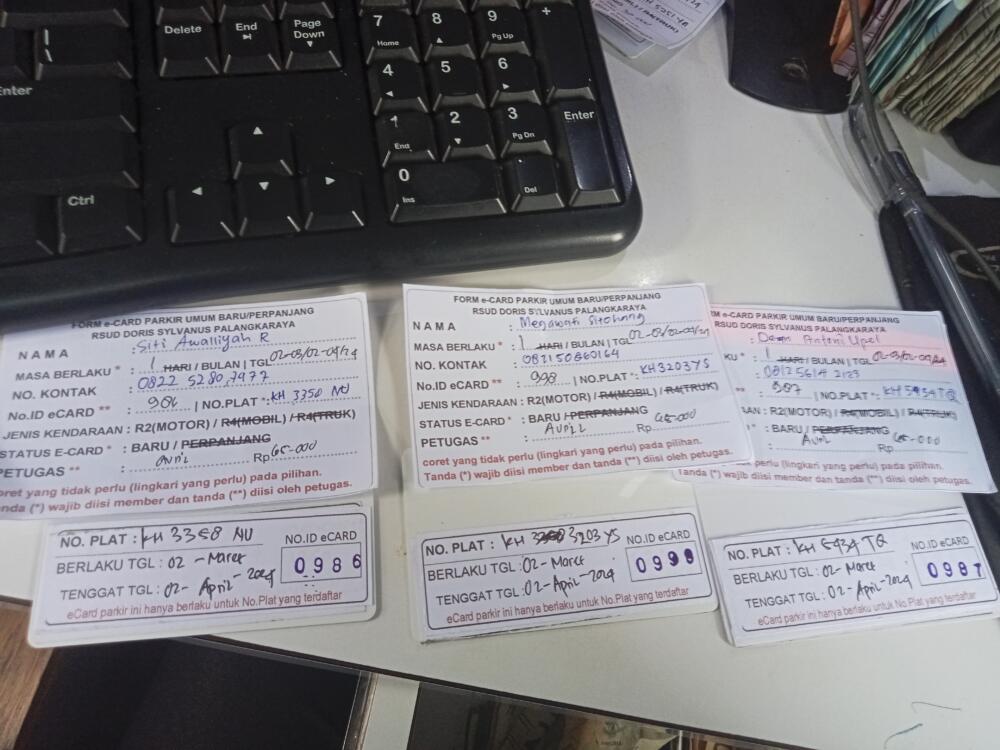 Delete
End
Page Down
7 Home
8
9 Pg Up
+
4
5
6
Enter
1 End
2
3 Pg Dn
Enter
0 Ins
Del
Ctrl
FORM e-CARD PARKIR UMUM BARU/PERPANJANG
RSUD DORIS SYLVANUS PALANGKARAYA
NAMA : Siti Awaliyah R
MASA BERLAKU * : 1 HARI / BULAN | TGL 02-03/02-04/24
NO. KONTAK : 0822 5280 7977
No.ID eCARD ** : 986 | NO.PLAT *: KH 3358 NU
JENIS KENDARAAN : R2(MOTOR) / R4(MOBIL) / R4(TRUK)
STATUS E-CARD * : BARU / PERPANJANG
PETUGAS ** : Avril Rp 65-000
coret yang tidak perlu (lingkari yang perlu) pada pilihan.
Tanda (*) wajib diisi member dan tanda (**) diisi oleh petugas.
NO. PLAT : KH 3358 NU
BERLAKU TGL : 02 - Maret
TENGGAT TGL : 02 - April - 2024
NO.ID eCARD
0986
eCard parkir ini hanya berlaku untuk No.Plat yang terdaftar
FORM e-CARD PARKIR UMUM BARU/PERPANJANG
RSUD DORIS SYLVANUS PALANGKARAYA
NAMA : Megawati Sitohang
MASA BERLAKU * : 1 HARI / BULAN | TGL 02-03/02-04/24
NO. KONTAK : 082150860164
No.ID eCARD ** : 998 | NO.PLAT *: KH3203YS
JENIS KENDARAAN : R2(MOTOR) / R4(MOBIL) / R4(TRUK)
STATUS E-CARD * : BARU / PERPANJANG
PETUGAS ** : Avril Rp 65-000
coret yang tidak perlu (lingkari yang perlu) pada pilihan.
Tanda (*) wajib diisi member dan tanda (**) diisi oleh petugas.
NO. PLAT : KH 3203 YS
BERLAKU TGL : 02 - Maret
TENGGAT TGL : 02 - April - 2024
NO.ID eCARD
0998
eCard parkir ini hanya berlaku untuk No.Plat yang terdaftar
FORM e-CARD PARKIR UMUM BARU/PERPANJANG
RSUD DORIS SYLVANUS PALANGKARAYA
: Antoni Upel
KU * : 1 HARI / BULAN | TGL 02-03/02-04/24
: 08125614 2123
** : 987 | NO.PLAT *: KH 5434 TQ
AAN : R2(MOTOR) / R4(MOBIL) / R4(TRUK)
* : BARU / PERPANJANG
: Avril Rp 65-000
perlu (lingkari yang perlu) pada pilihan.
Tanda (*) wajib diisi member dan tanda (**) diisi oleh petugas.
NO. PLAT : KH 5434 TQ
BERLAKU TGL : 02 - Maret
TENGGAT TGL : 02 - April - 2024
NO.ID eCARD
0987
eCard parkir ini hanya berlaku untuk No.Plat yang terdaftar